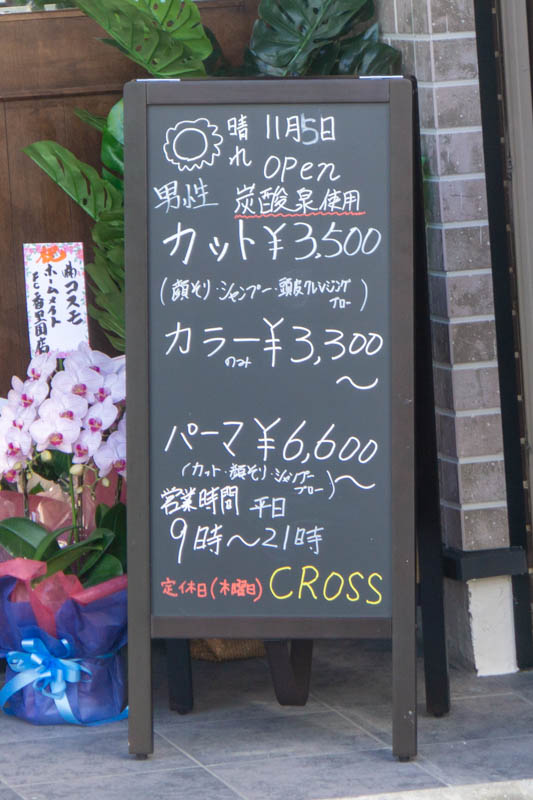 晴れ 11月5日
open
男性 炭酸泉使用
カット ¥3,500
(顔そり・シャンプー・頭皮クレンジング
ブロー)
カラーのみ ¥3,300
～
パーマ ¥6,600
(カット・顔そり・シャンプー
ブロー)～
営業時間 平日
9時～21時
定休日(木曜日) CROSS
祝
㈱コスモ
ホームメイト
FC香里園店